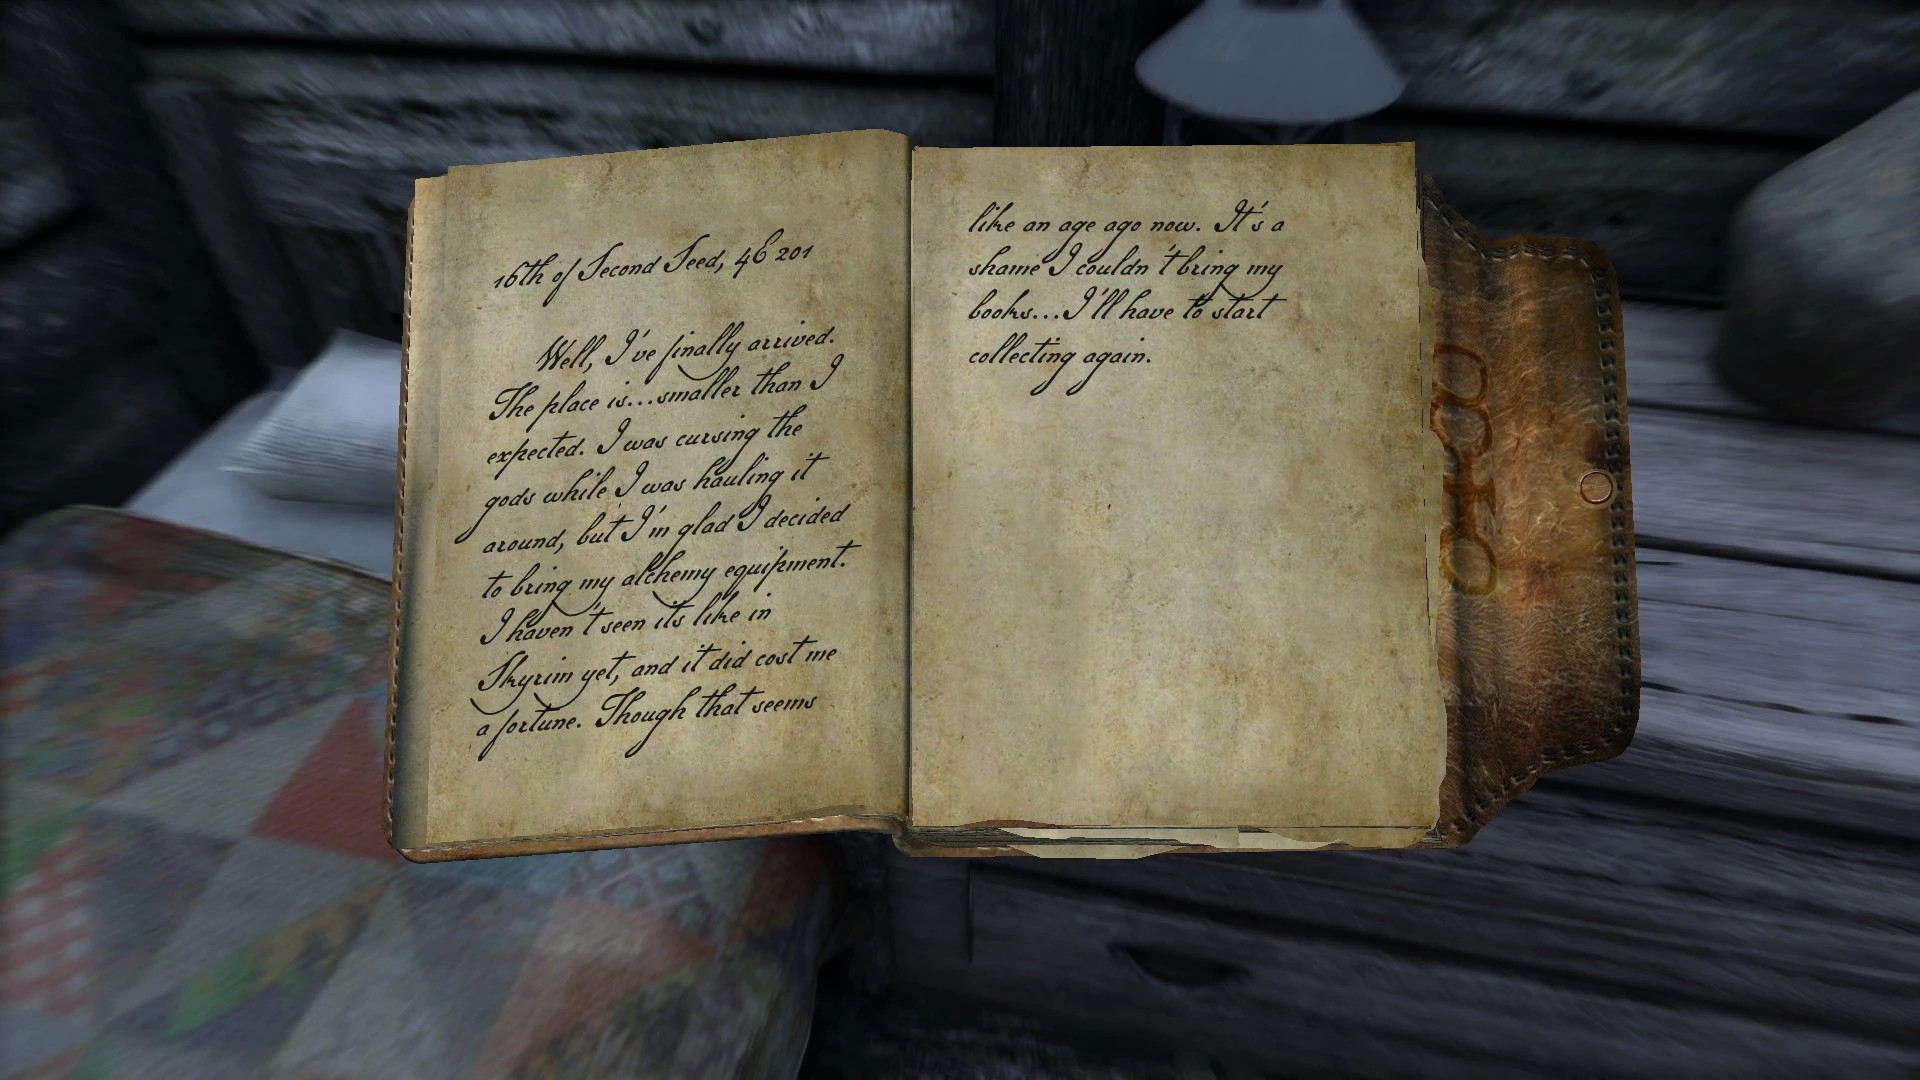 16th of Second Seed, 4E 201
Well, I've finally arrived.
The place is...smaller than I
expected. I was cursing the
gods while I was hauling it
around, but I'm glad I decided
to bring my alchemy equipment.
I haven't seen its like in
Skyrim yet, and it did cost me
a fortune. Though that seems
like an age ago now. It's a
shame I couldn't bring my
books...I'll have to start
collecting again.